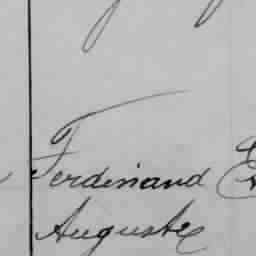 Ferdinand
Auguste